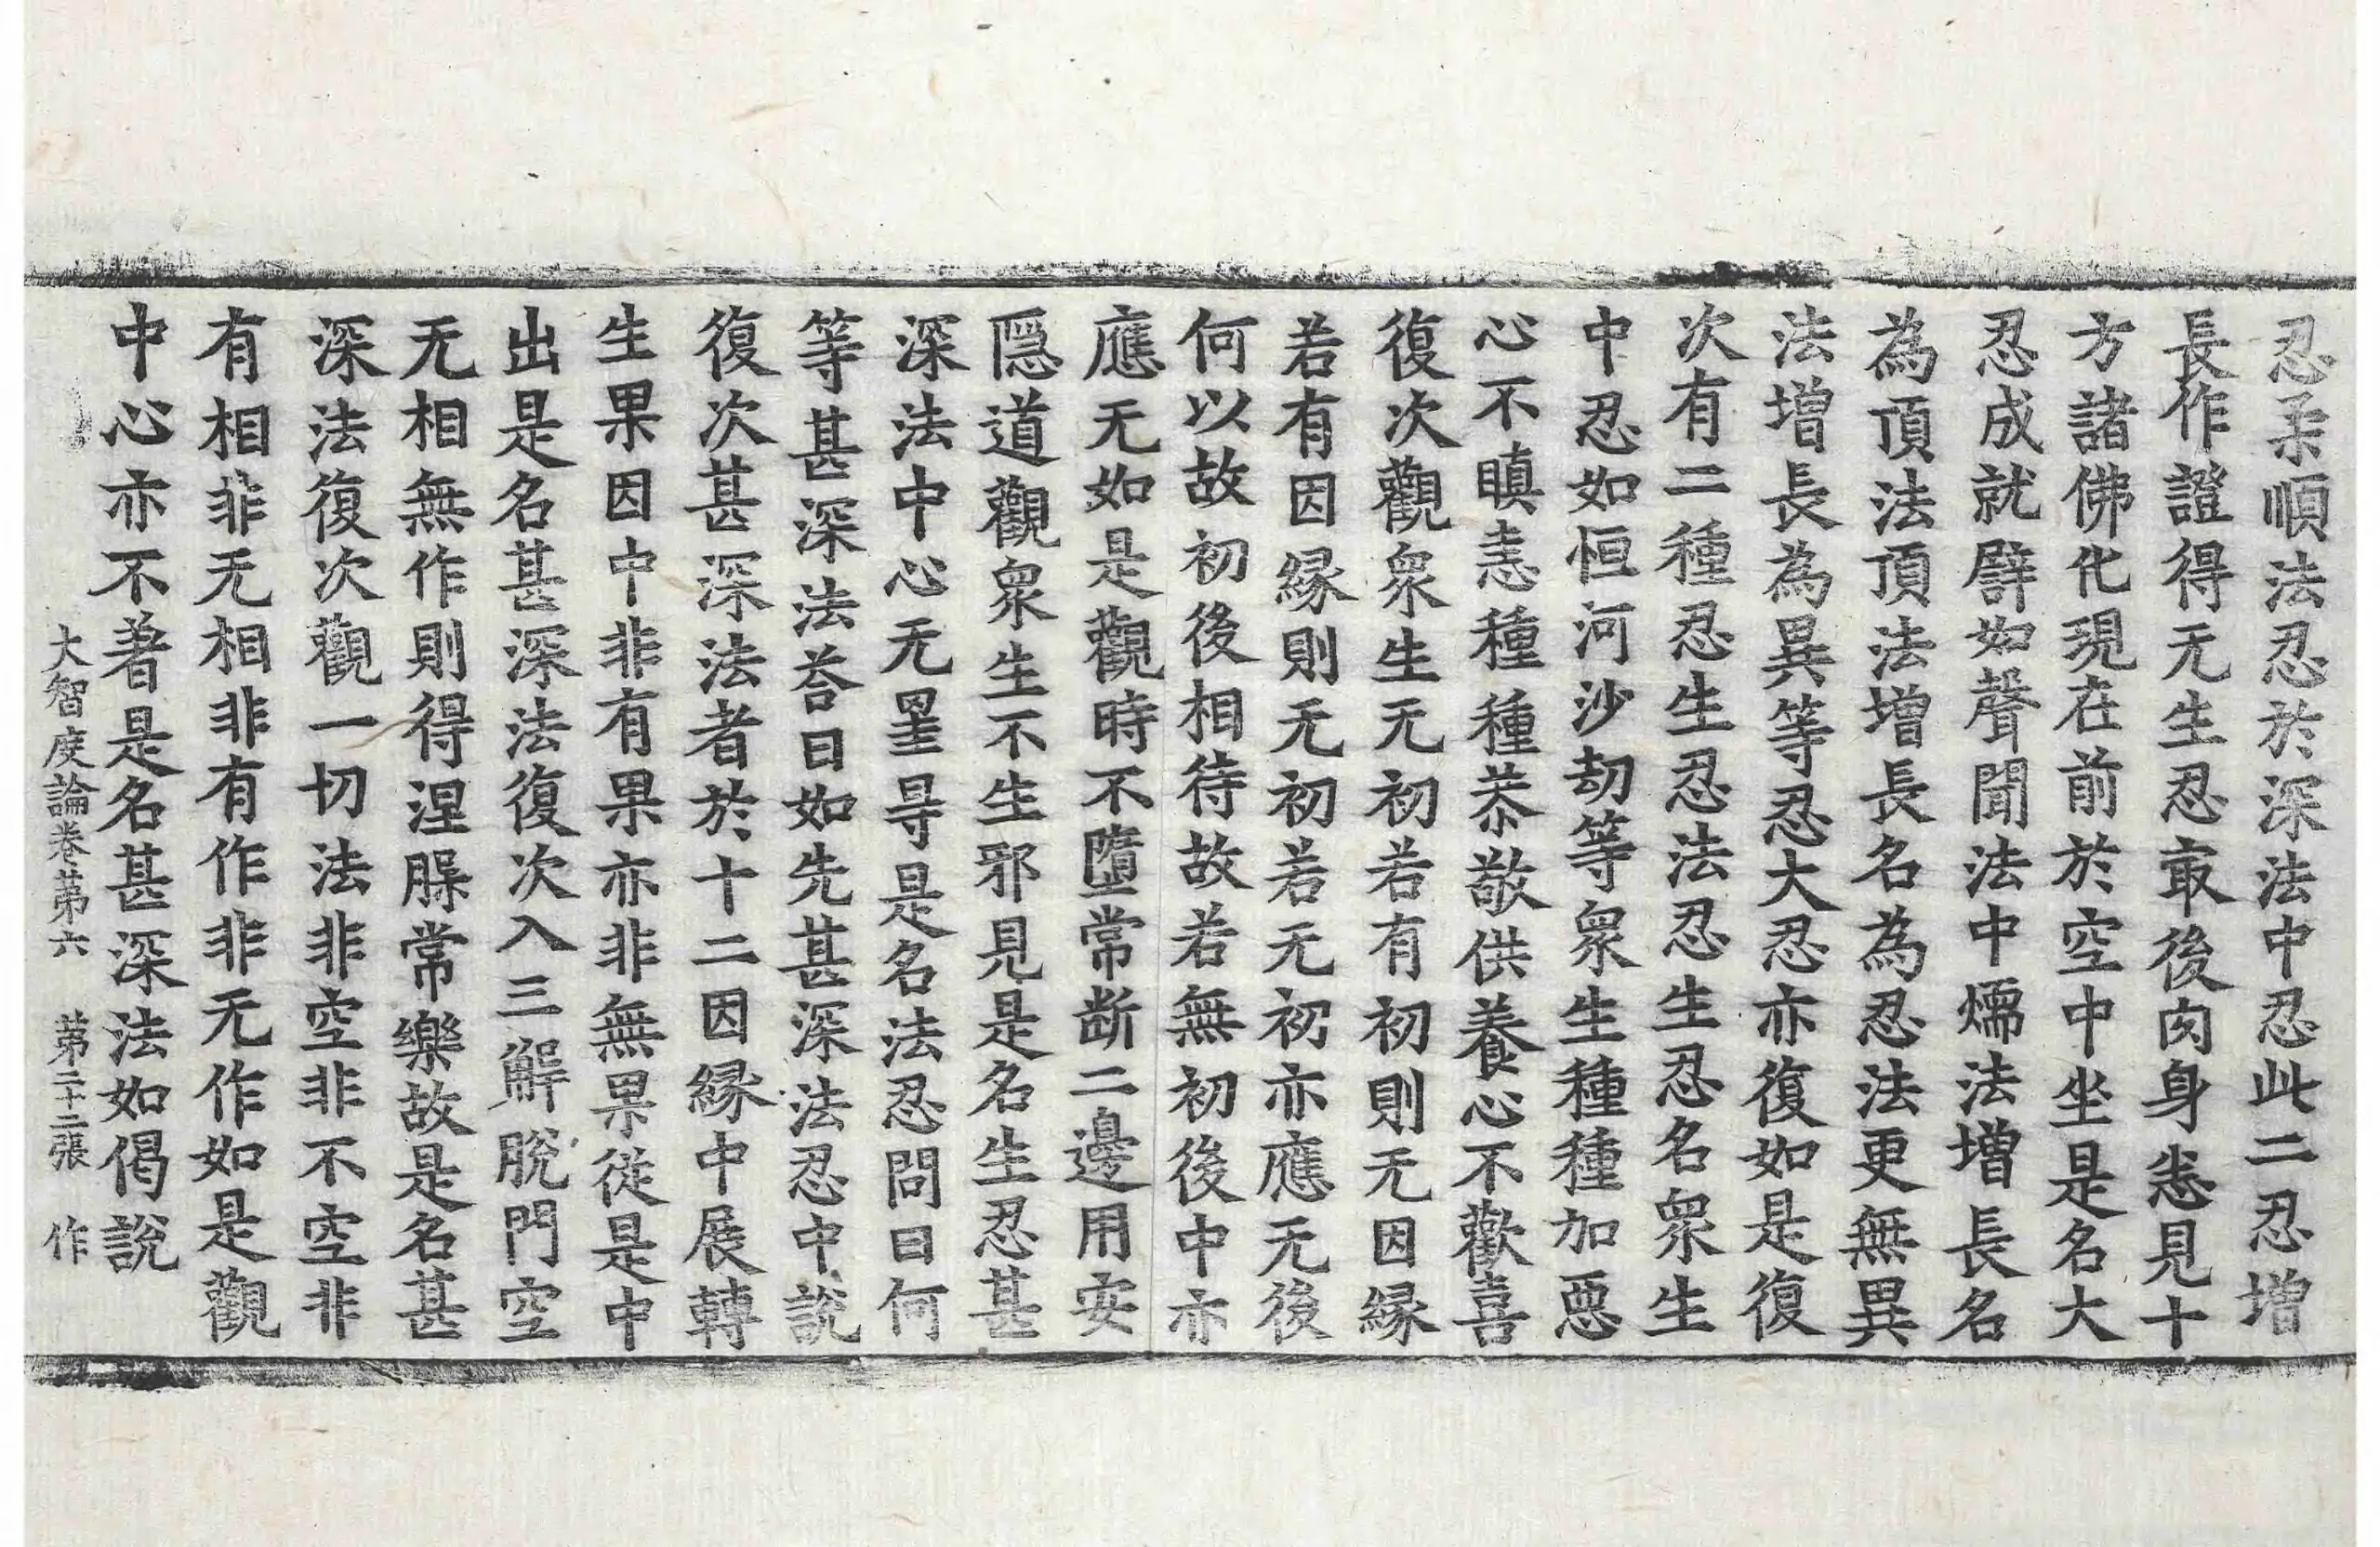 忍柔順法忍於深法中忍此二忍增
長作證得无生忍㝡後肉身悉見十
方諸佛化現在前於空中坐是名大
忍成就譬如聲聞法中燸法增長名
為頂法頂法增長名為忍法更無異
法增長為異等忍大忍亦復如是復
次有二種忍生忍法忍生忍名眾生
中忍如恒河沙劫等眾生種種加惡
心不瞋恚種種恭敬供養心不歡喜
復次觀眾生无初若有初則无因緣
若有因緣則无初若无初亦應无後
何以故初後相待故若無初後中亦
應无如是觀時不墮常断二邊用安
隱道觀眾生不生邪見是名生忍甚
深法中心无罣㝵是名法忍問曰何
等甚深法荅曰如先甚深法忍中說
復次甚深法者於十二因緣中展轉
生果因中非有果亦非無果從是中
出是名甚深法復次入三解脫門空
无相無作則得涅槃常樂故是名甚
深法復次觀一切法非空非不空非
有相非无相非有作非无作如是觀
中心亦不著是名甚深法如偈說
大智度論卷苐六 苐二十二張 作